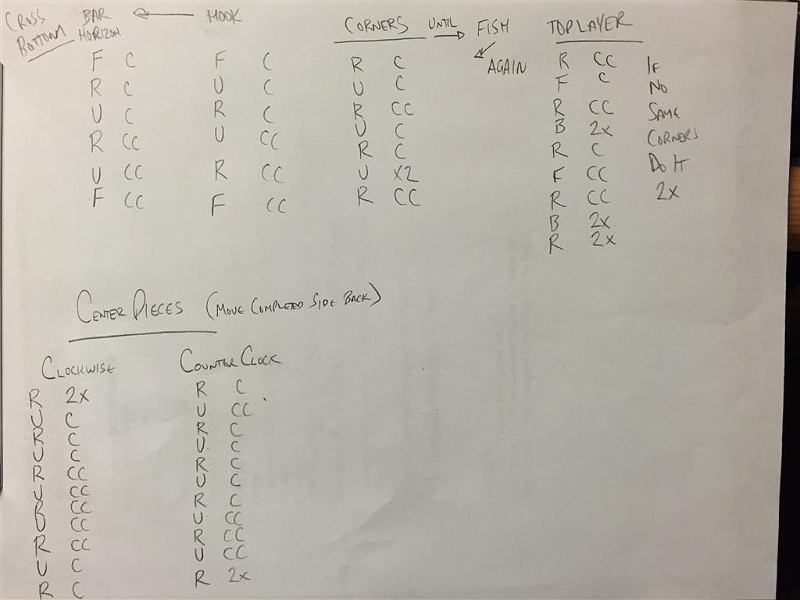 CROSS
BOTTOM
BAR
HORIZON
F C
R C
U C
R CC
U CC
F CC
HOOK
F C
U C
R C
U CC
R CC
F CC
CORNERS UNTIL FISH
AGAIN
R C
U C
R CC
U C
R C
U X2
R CC
TOPLAYER
R CC
F C
R CC
B 2X
R C
F CC
R CC
B 2X
R 2X
IF
NO
SAME
CORNERS
DO IT
2X
CENTER PIECES (MOVE COMPLETED SIDE BACK)
CLOCKWISE
R 2X
U C
R C
U C
R CC
U CC
R CC
U CC
R CC
U C
R C
COUNTER CLOCK
R C
U CC
R C
U C
R C
U C
R C
U CC
R CC
U CC
R 2X